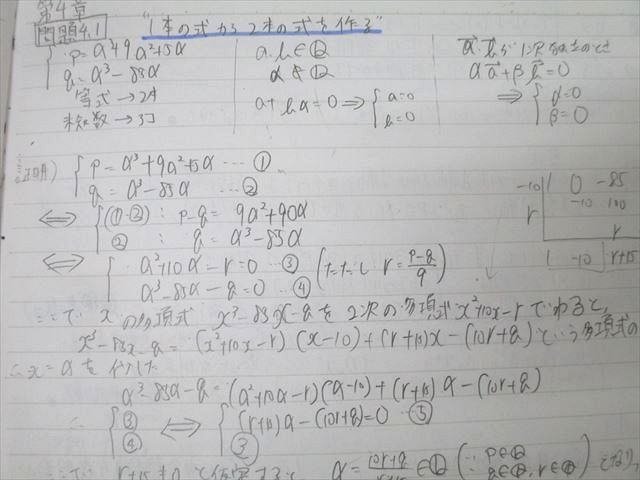 第4章
問題4.1
"1本の式から2本の式を作る"
p=α³+9α²+5α
q=α³-85α
等式→2本
未知数→3コ
a,b∈Q
α∉Q
a+bα=0⇒{a=0
b=0
αa+βb=0
⇒{α=0
β=0
証明)
p=α³+9α²+5α …①
q=α³-85α …②
⇔{(①-②): p-q=9α²+90α
② : q=α³-85α
⇔{α²+10α-r=0 …③ (ただし r=(p-q)/9)
α³-85α-q=0 …④
ここで xの多項式 x³-85x-qを2次の多項式x²+10x-rでわると,
x³-85x-q=(x²+10x-r)(x-10)+(r+15)x-(10r+q)という多項式の
∴x=αを代入した
α³-85α-q=(α²+10α-r)(α-10)+(r+15)α-(10r+q)
∴{③
④
⇔{(r+15)α-(10r+q)=0 …⑤
③
ここで r+15≠0と仮定すると α=(10r+q)/(r+15)∈Q (∵p∈Q
q∈Q,r∈Q)となり
-10
1 0 -85
-10 100
r
r
1 -10 r+15